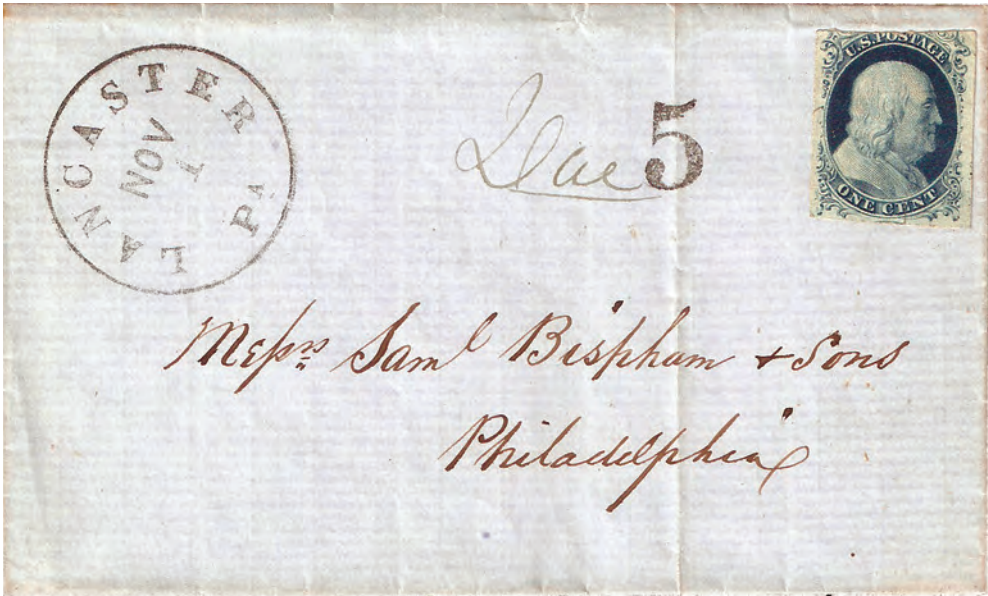 LANCASTER PA
NOV
1
Due 5
U.S. POSTAGE
ONE CENT
Messrs Saml Bispham + Sons
Philadelphia